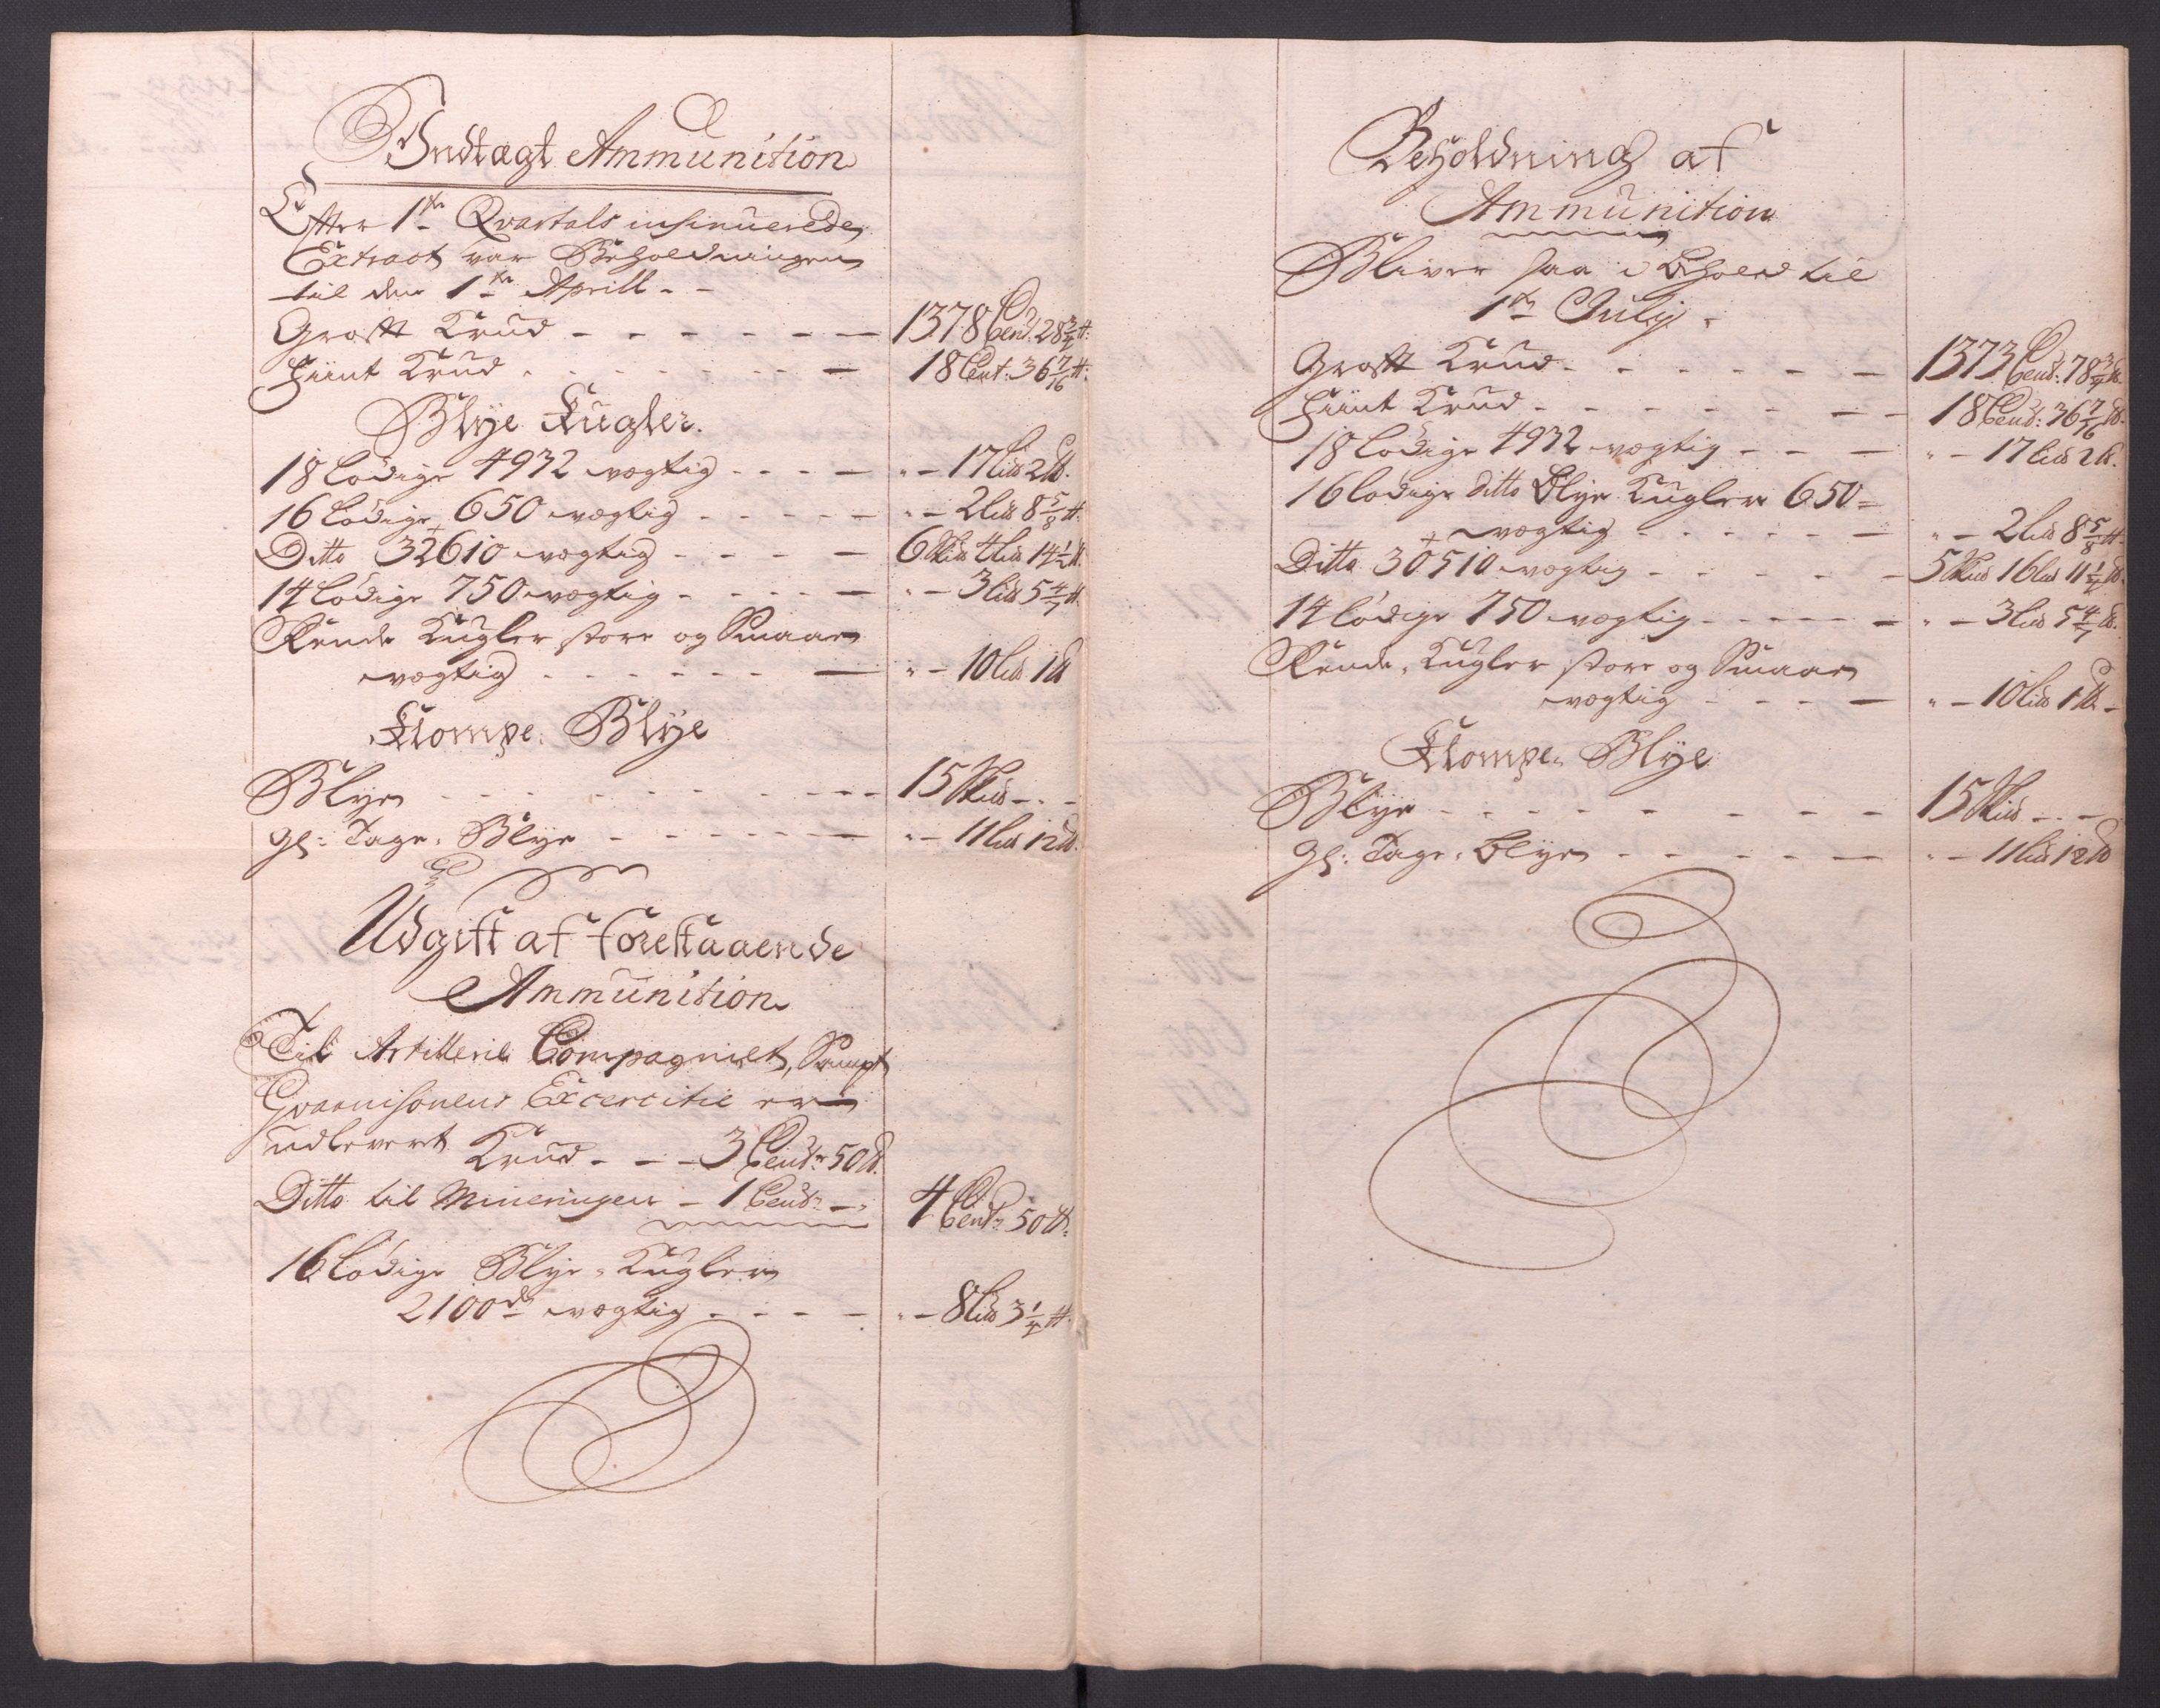 Indtægt Ammunition
Efter 1ste Qvartals insinuerede
Extract var Beholdningen
til den 1ste Aprill - -
Groft Krud - - - - - - 1378 Cent: 28 3/4 ℔:
Fiint Krud - - - - - - 18 Cent: 36 7/16 ℔:
Blye Kugler.
18 Lodige 4932 vægtig - - - - " - 17 Lis 2 ℔.
16 Lodige 650 vægtig - - - - - " - 2 Lis 8 5/8 ℔:
Ditto 32610 vægtig - - - - 6 Skis 4 Lis 14 1/2 ℔.
14 Lodige 750 vægtig - - - - - " - 3 Lis 5 4/7 ℔.
Runde Kugler store og Smaae
vægtig - - - - - - - " - 10 Lis 1 ℔
Klompe Blye
Blye - - - - - - - - - 15 Skis - . -
gl: Tage Blye - - - - - - " - 11 Lis 12 ℔.
Udgift af forestaaende
Ammunition
Til Artillerie Compagniet, Sampt
Guarnisonens Excercitie er
udlevert Krud - - - 3 Centr 50 ℔.
Ditto til Mineringen - 1 Centr: - " 4 Centr: 50 ℔:
16 Lodige Blye Kugler
2100de vægtig - - - - " - 8 Lis 3 1/4 ℔:
Beholdning af
Ammunition
Bliver saa i Behold til
1ste July.
Groft Krud - - - - - - 1373 Cent: 78 3/4 ℔.
Fiint Krud - - - - - - - 18 Cent: 36 7/16 ℔.
18 Lodige 4932 vægtig - - - " - 17 Lis 2 ℔.
16 Lodige ditto Blye Kugler 650 =
vægtig - - - - - - " - 2 Lis 8 5/8 ℔:
Ditto 30510 vægtig - - - - - 5 Skis 16 Lis 11 1/4 ℔.
14 Lodige 750 vægtig - - - - - - " - 3 Lis 5 4/7 ℔.
Runde Kugler store og Smaae
vægtig - - - - " - 10 Lis 1 ℔ -
Klompe Blye
Blye - - - - - - - - 15 Skis - . -
gl: Tage Blye - - - - - " - 11 Lis 12 ℔